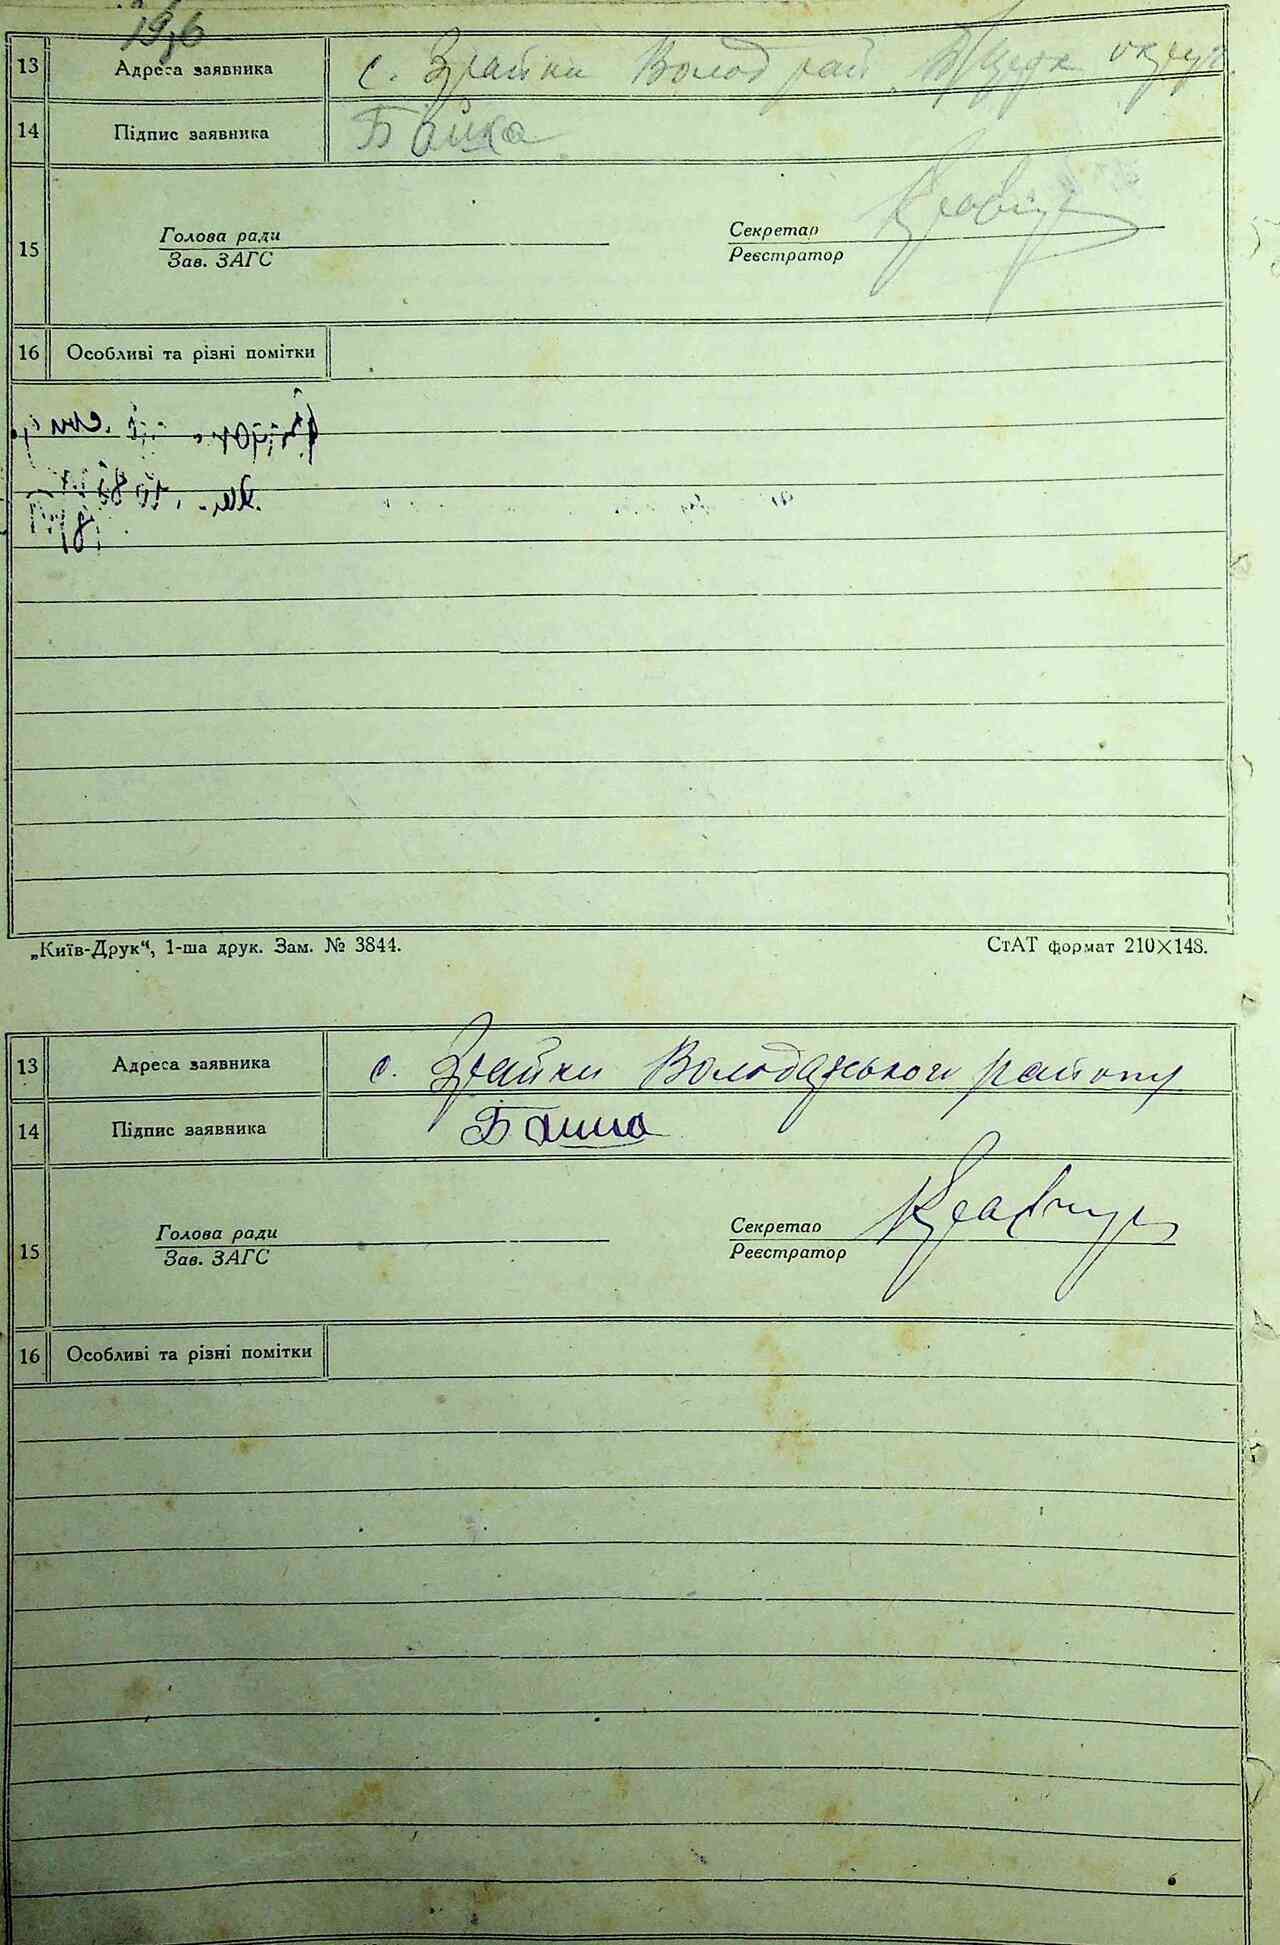 13 Адреса заявника с. Зрайки Волод рай Б/Церк округ
14 Підпис заявника Байка
15 Голова ради Секретар Кравчук
Зав. ЗАГС Реєстратор
16 Особливі та різні помітки
„Київ-Друк“, 1-ша друк. Зам. № 3844. СтАТ формат 210×148.
13 Адреса заявника с. Зрайки Володарського району
14 Підпис заявника
15 Голова ради Секретар Кравчук
Зав. ЗАГС Реєстратор
16 Особливі та різні помітки